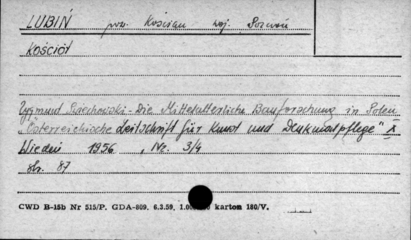 LUBIŃ pow. Kościan woj. Poznań
KOŚCIÓŁ
Zygmunt Świechowski - Die Mittelalterliche Bauforschung in Polen
"Österreichische Zeitschrift für Kunst und Denkmalpflege" X
Wiedeń 1956, Nr. 3/4
str. 87
CWD B-15b Nr 515/P. GDA-809. 6.2.59, karton 180/V.